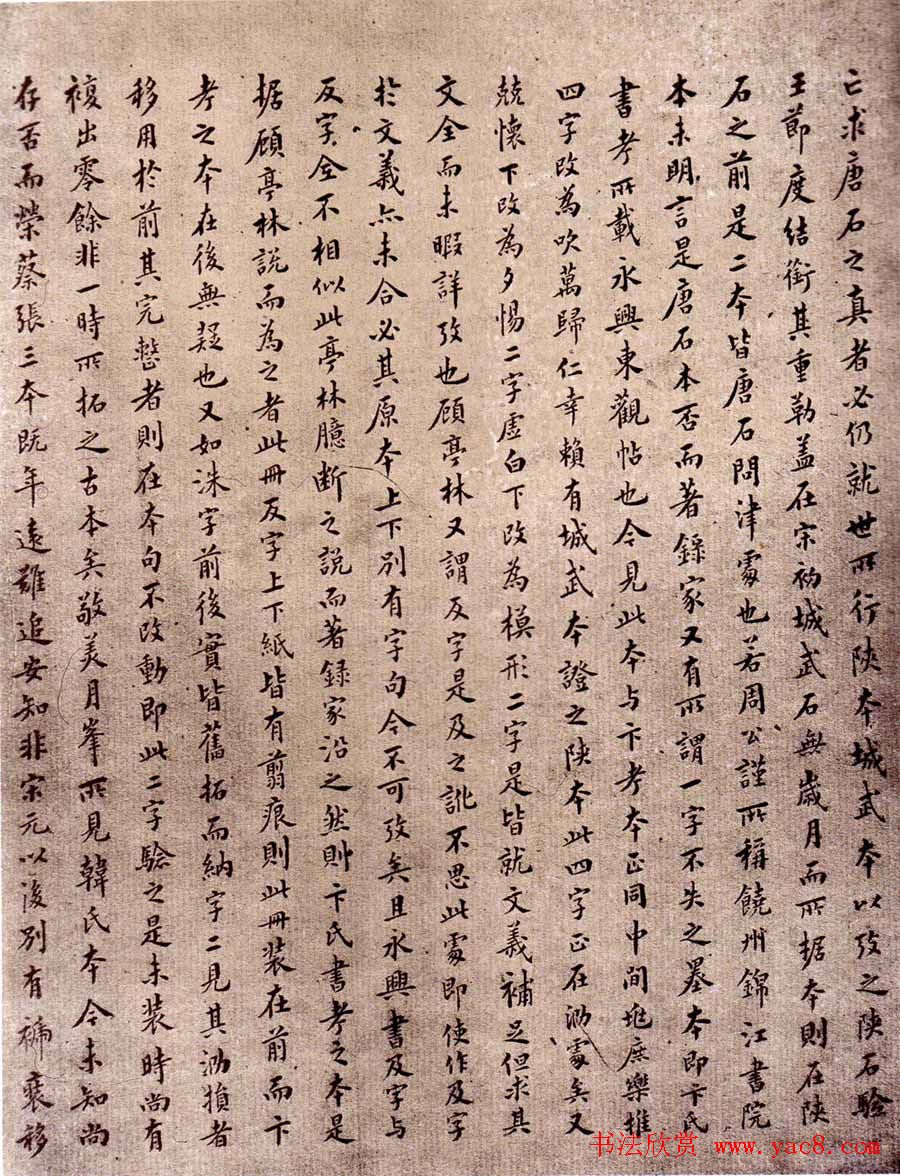 亡求唐石之真者必仍就世所行陕本城武本以攷之陕石驗
王節度結銜其重勒蓋在宋初城武石無歲月而所据本則在陕
石之前是二本皆唐石問津處也若周公謹所稱饒州錦江書院
本未明言是唐石本否而著錄家又有所謂一字不失之墨本即卞氏
書考所載永興東觀帖也今見此本与卞考本正同中間虵庶樂推
四字改為吹萬歸仁幸賴有城武本證之陕本此四字正在泐處矣又
兢懷下改為夕惕二字虛白下改為模形二字是皆就文義補足但求其
文全而未暇詳攷也顧亭林又謂反字是及之訛不思此處即使作及字
於文義亦未合必其原本上下別有字句今不可攷矣且永興書及字与
反字全不相似此亭林臆斷之說而著録家沿之然則卞氏書考之本是
据顧亭林說而為之者此冊反字上下紙皆有翦痕則此冊装在前而卞
考之本在後無疑也又如洙字前後實皆舊拓而納字二見其泐損者
移用於前其完整者則在本句不改動即此二字驗之是未装時尚有
複出零餘非一時所拓之古本矣敬美月峯所見韓氏本今未知尚
存否而榮蔡張三本既年遠難追安知非宋元以後別有褫裝移
书法欣赏 www.yac8.com